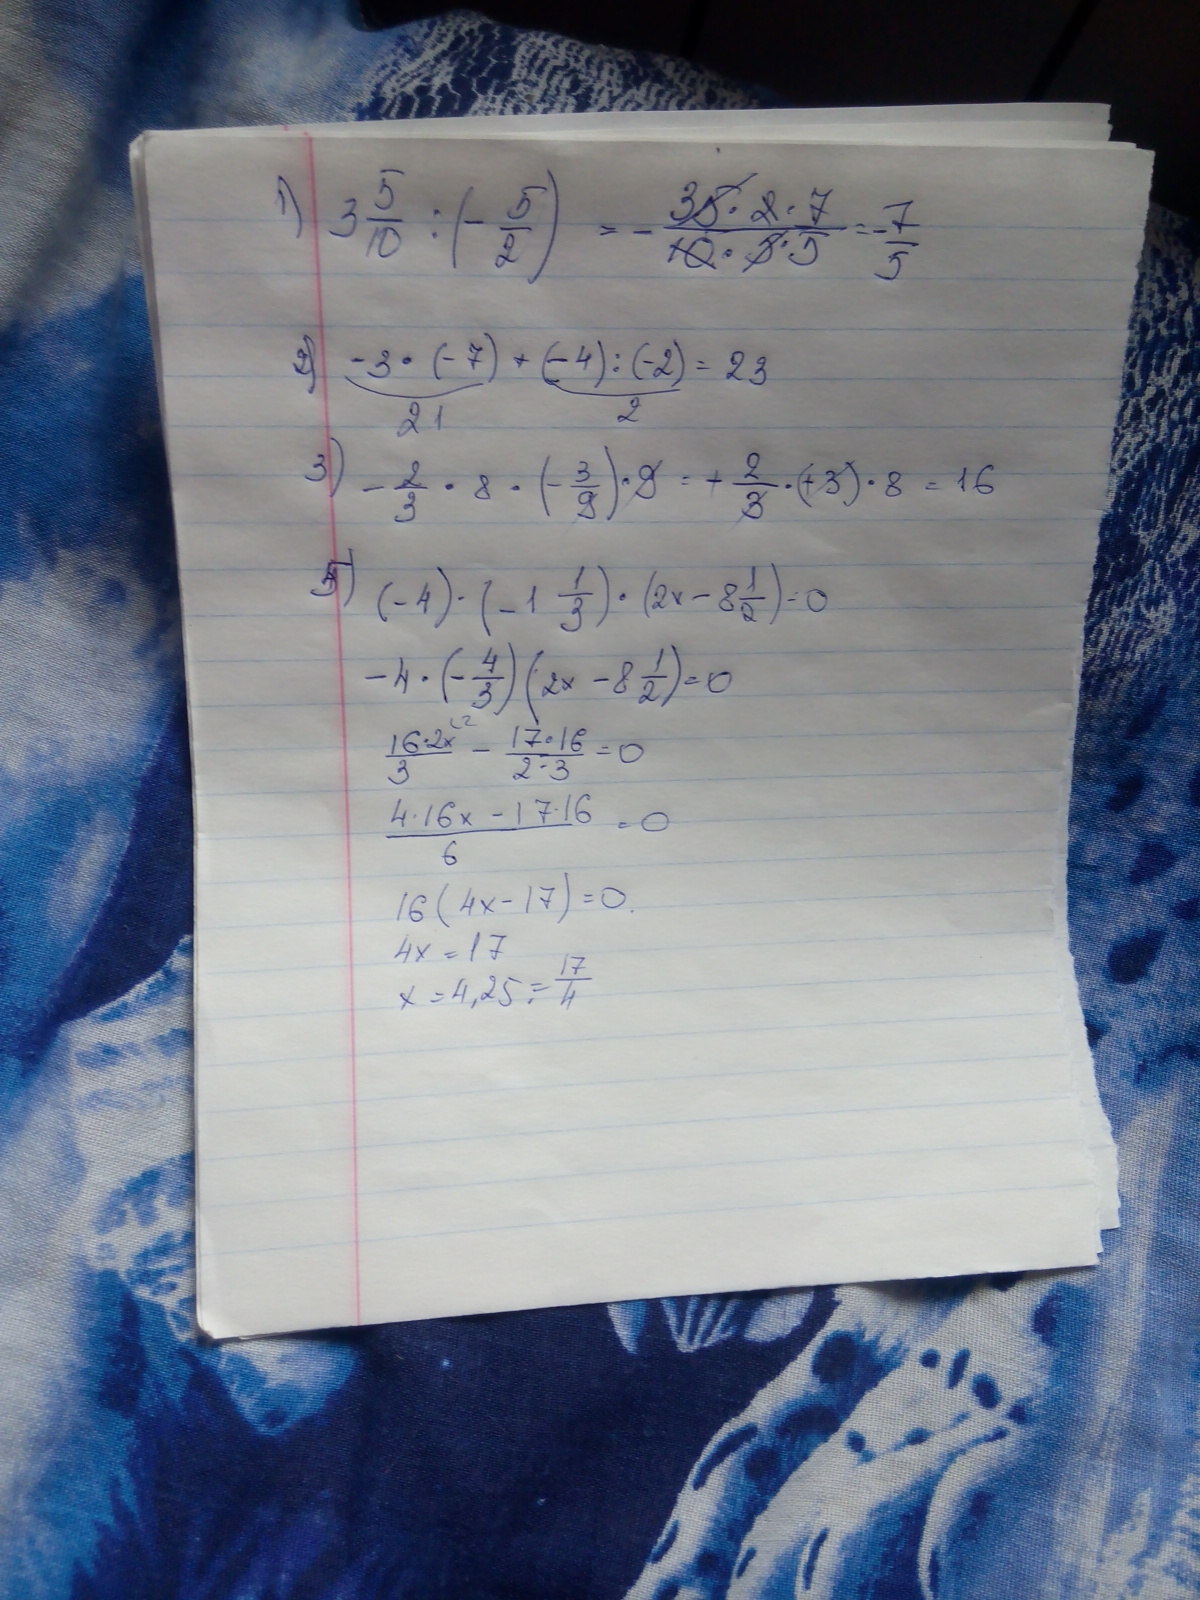 1) 3 5/10 : (- 5/2) = - 35 · 2 · 7 / 10 · 5 · 5 = - 7/5
2) -3 · (-7) + (-4) : (-2) = 23
21 2
3) - 2/3 · 8 · (- 3/9) · 9 = + 2/3 · (+3) · 8 = 16
5) (-4) · (-1 1/3) · (2x - 8 1/2) = 0
-4 · (- 4/3) (2x - 8 1/2) = 0
16·2x/3 - 17·16/2·3 = 0
4·16x - 17·16 / 6 = 0
16(4x - 17) = 0.
4x = 17
x = 4,25 = 17/4